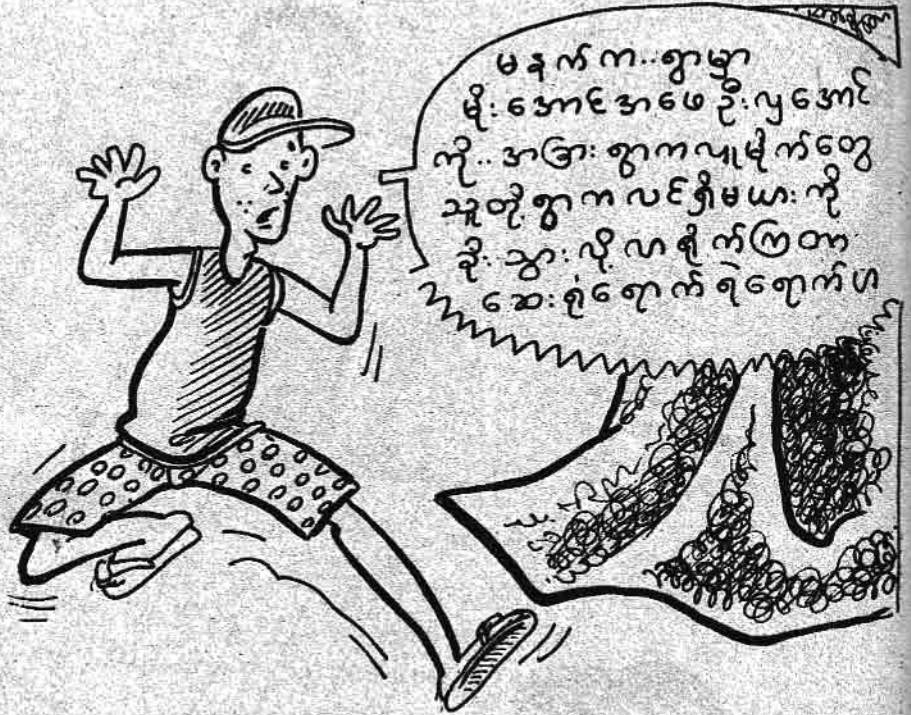 မနက်က..ရွာမှာ
မိုးအောင်အဖေ ဦးလှအောင်
ကို..အခြားရွာကလူမိုက်တွေ
သူတို့ရွာက လင်ရှိမယားကို
ခိုးသွားလို့ လာရိုက်ကြတာ
ဆေးရုံရောက် ရဲရောက်ဟ